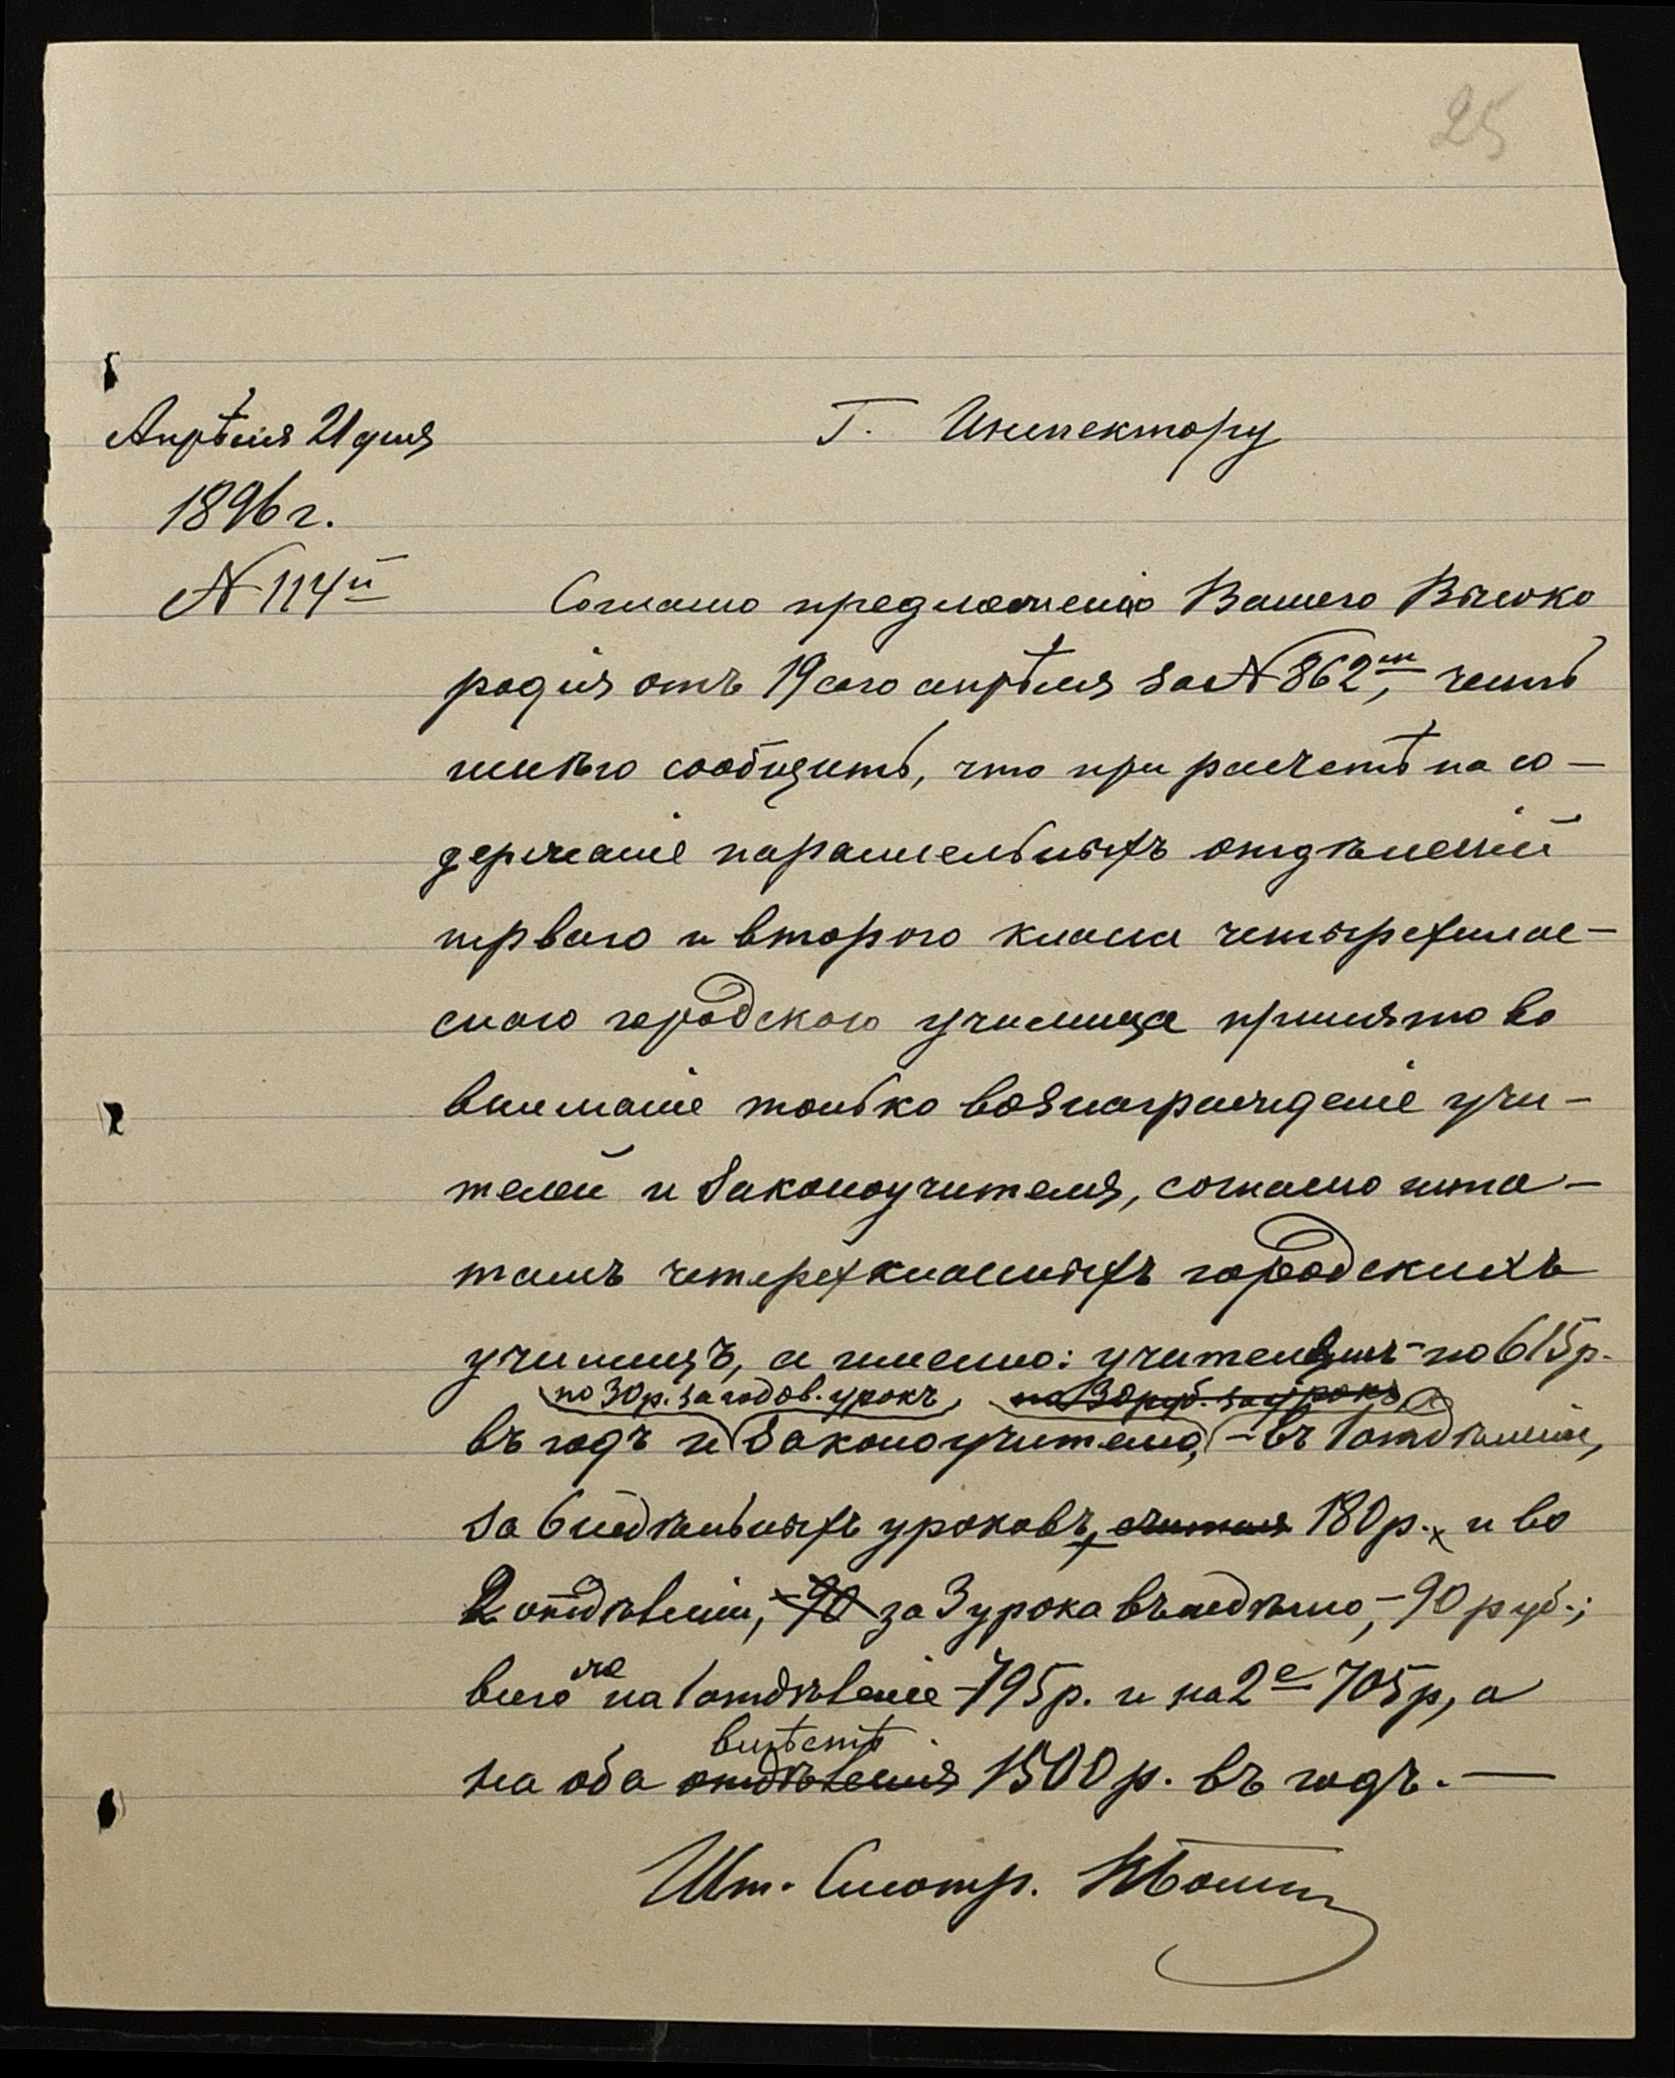 25
Апрѣля 21 дня
1896 г.
№ 114й
Г. Инспектору
Согласно предложенію Вашего Высоко
родія отъ 19 сего апрѣля за № 862м, честь
имѣю сообщить, что при расчетѣ на со-
держаніе параллельныхъ отдѣленій
перваго и второго класса четырехклас-
снаго городского училища принято во
вниманіе только вознагражденіе учи-
телей и законоучителя, согласно шта-
тамъ четырехклассныхъ городскихъ
училищъ, а именно: учителямъ - по 615 р.
по 30 р. за годов. урокъ, по 30 руб. за урокъ,
въ годъ и законоучителю, - въ 1 отдѣленіи,
за 6 недѣльныхъ уроковъ, считая 180 р. и во
2 отдѣленіи, - 90 за 3 урока въ недѣлю, - 90 руб.;
всего же на 1 отдѣленіе - 795 р. и на 2е 705 р, а
вмѣстѣ
на оба отдѣленія 1500 р. въ годъ. —
Шт. Смотр.